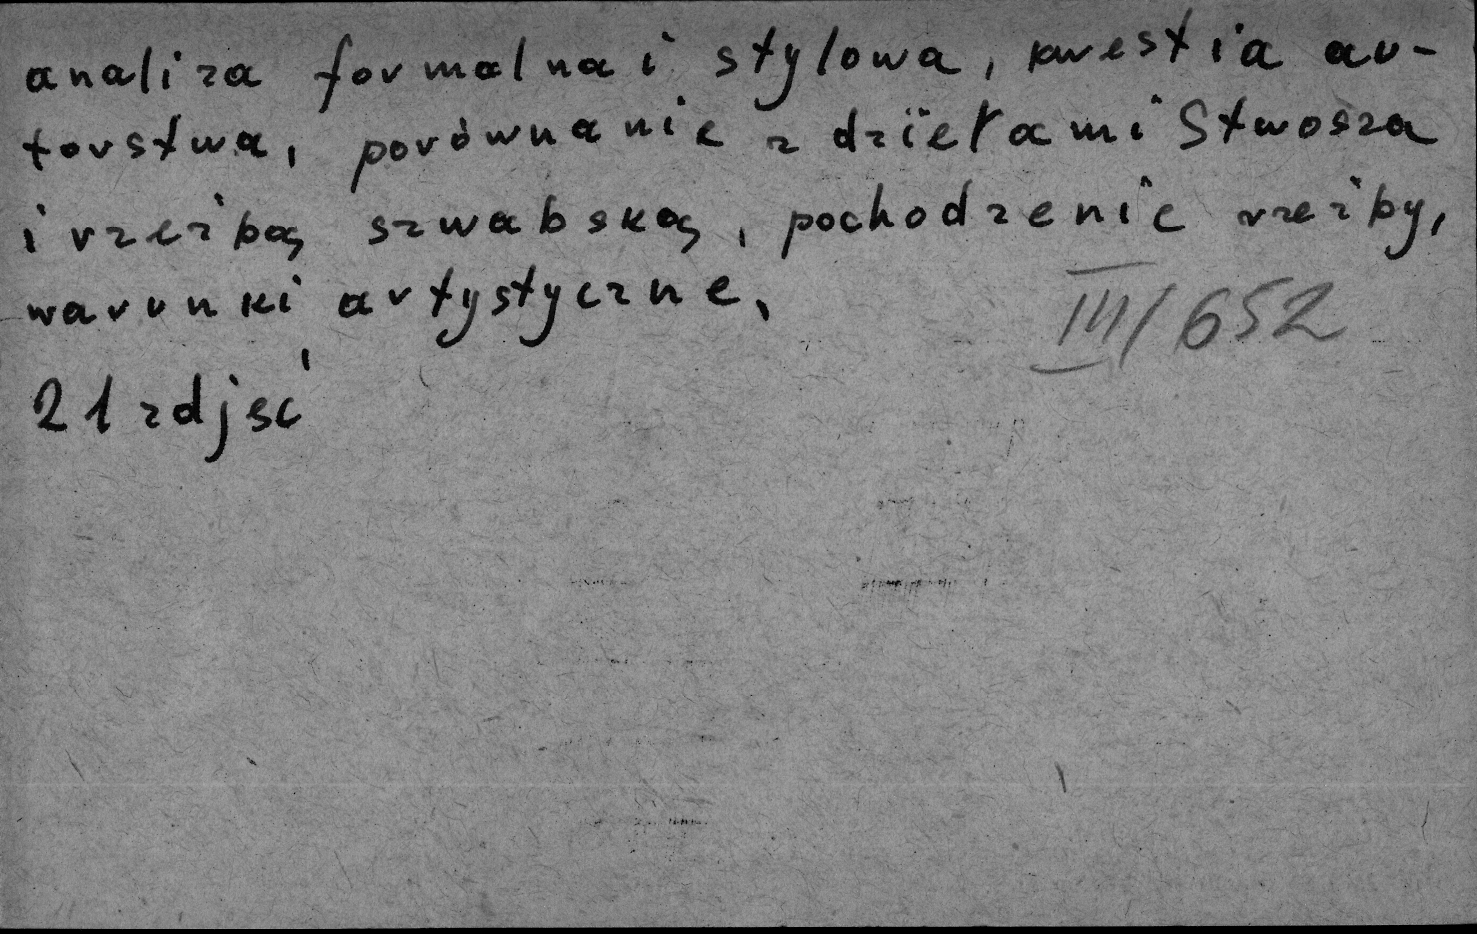 analiza formalna i stylowa, kwestia au-
torstwa, porównanie z dziełami Stwosza
i rzeźbą szwabską, pochodzenie rzeźby,
warunki artystyczne,
III/652
21 zdjęć